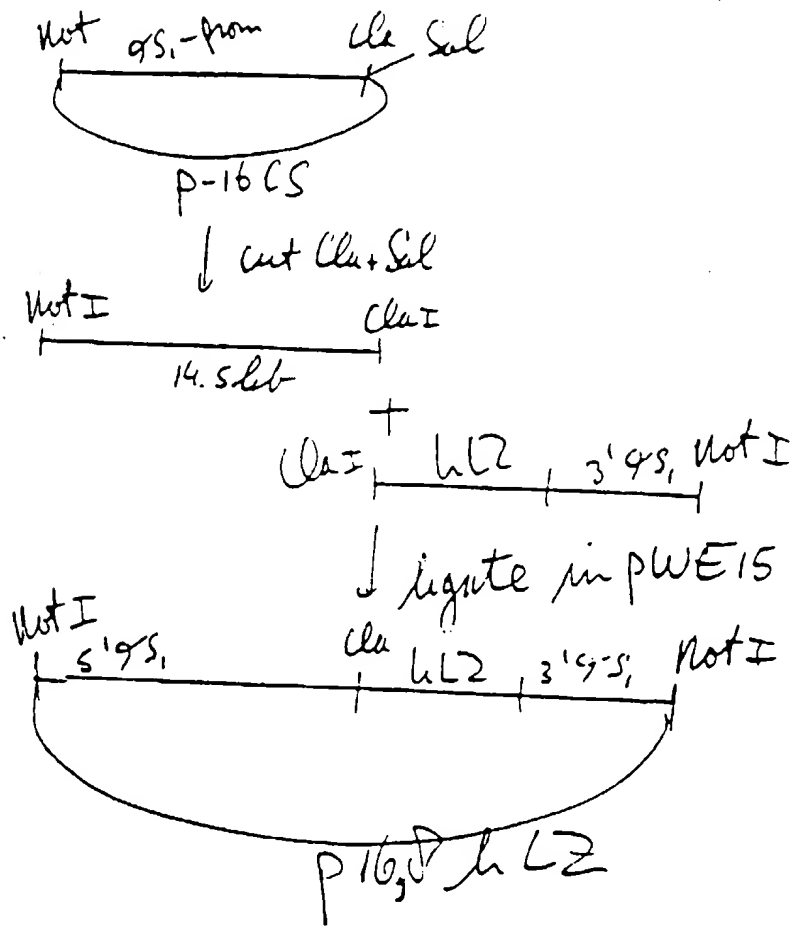 Not αS₁-prom Cla Sal
p-16 CS
cut Cla + Sal
Not I Cla I
14.5 kb
+
Cla I hLZ 3'αS₁ Not I
ligate in pWE15
Not I 5'αS₁ Cla hLZ 3'αS₁ Not I
p16,8 hLZ